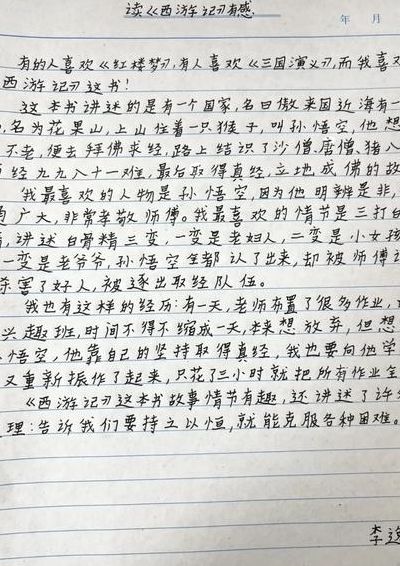 读《西游记》有感
年 月
有的人喜欢《红楼梦》,有人喜欢《三国演义》,而我喜欢
西游记》这书!
这本书讲述的是有一个国家,名曰傲来国近海有一
名为花果山,上山住着一只猴子,叫孙悟空,他想
不老,便去拜佛求经,路上结识了沙僧,唐僧,猪八
经九九八十一难,最后取得真经,立地成佛的故
我最喜欢的人物是孙悟空,因为他明辨是非,
广大,非常孝敬师傅。我最喜欢的情节是三打白
讲述白骨精三变,一变是老妇人,二变是小女孩
一变是老爷爷,孙悟空全都认了出来,却被师傅
害了好人,被逐出取经队伍。
我也有这样的经历:有一天,老师布置了很多作业,
兴趣班,时间不得不缩成一天,本来想放弃,但想
悟空,他靠自己的坚持取得真经,我也要向他学
又重新振作了起来,只花了三小时就把所有作业全
《西游记》这本书故事情节有趣,还讲述了许
理:告诉我们要持之以恒,就能克服各种困难。
李